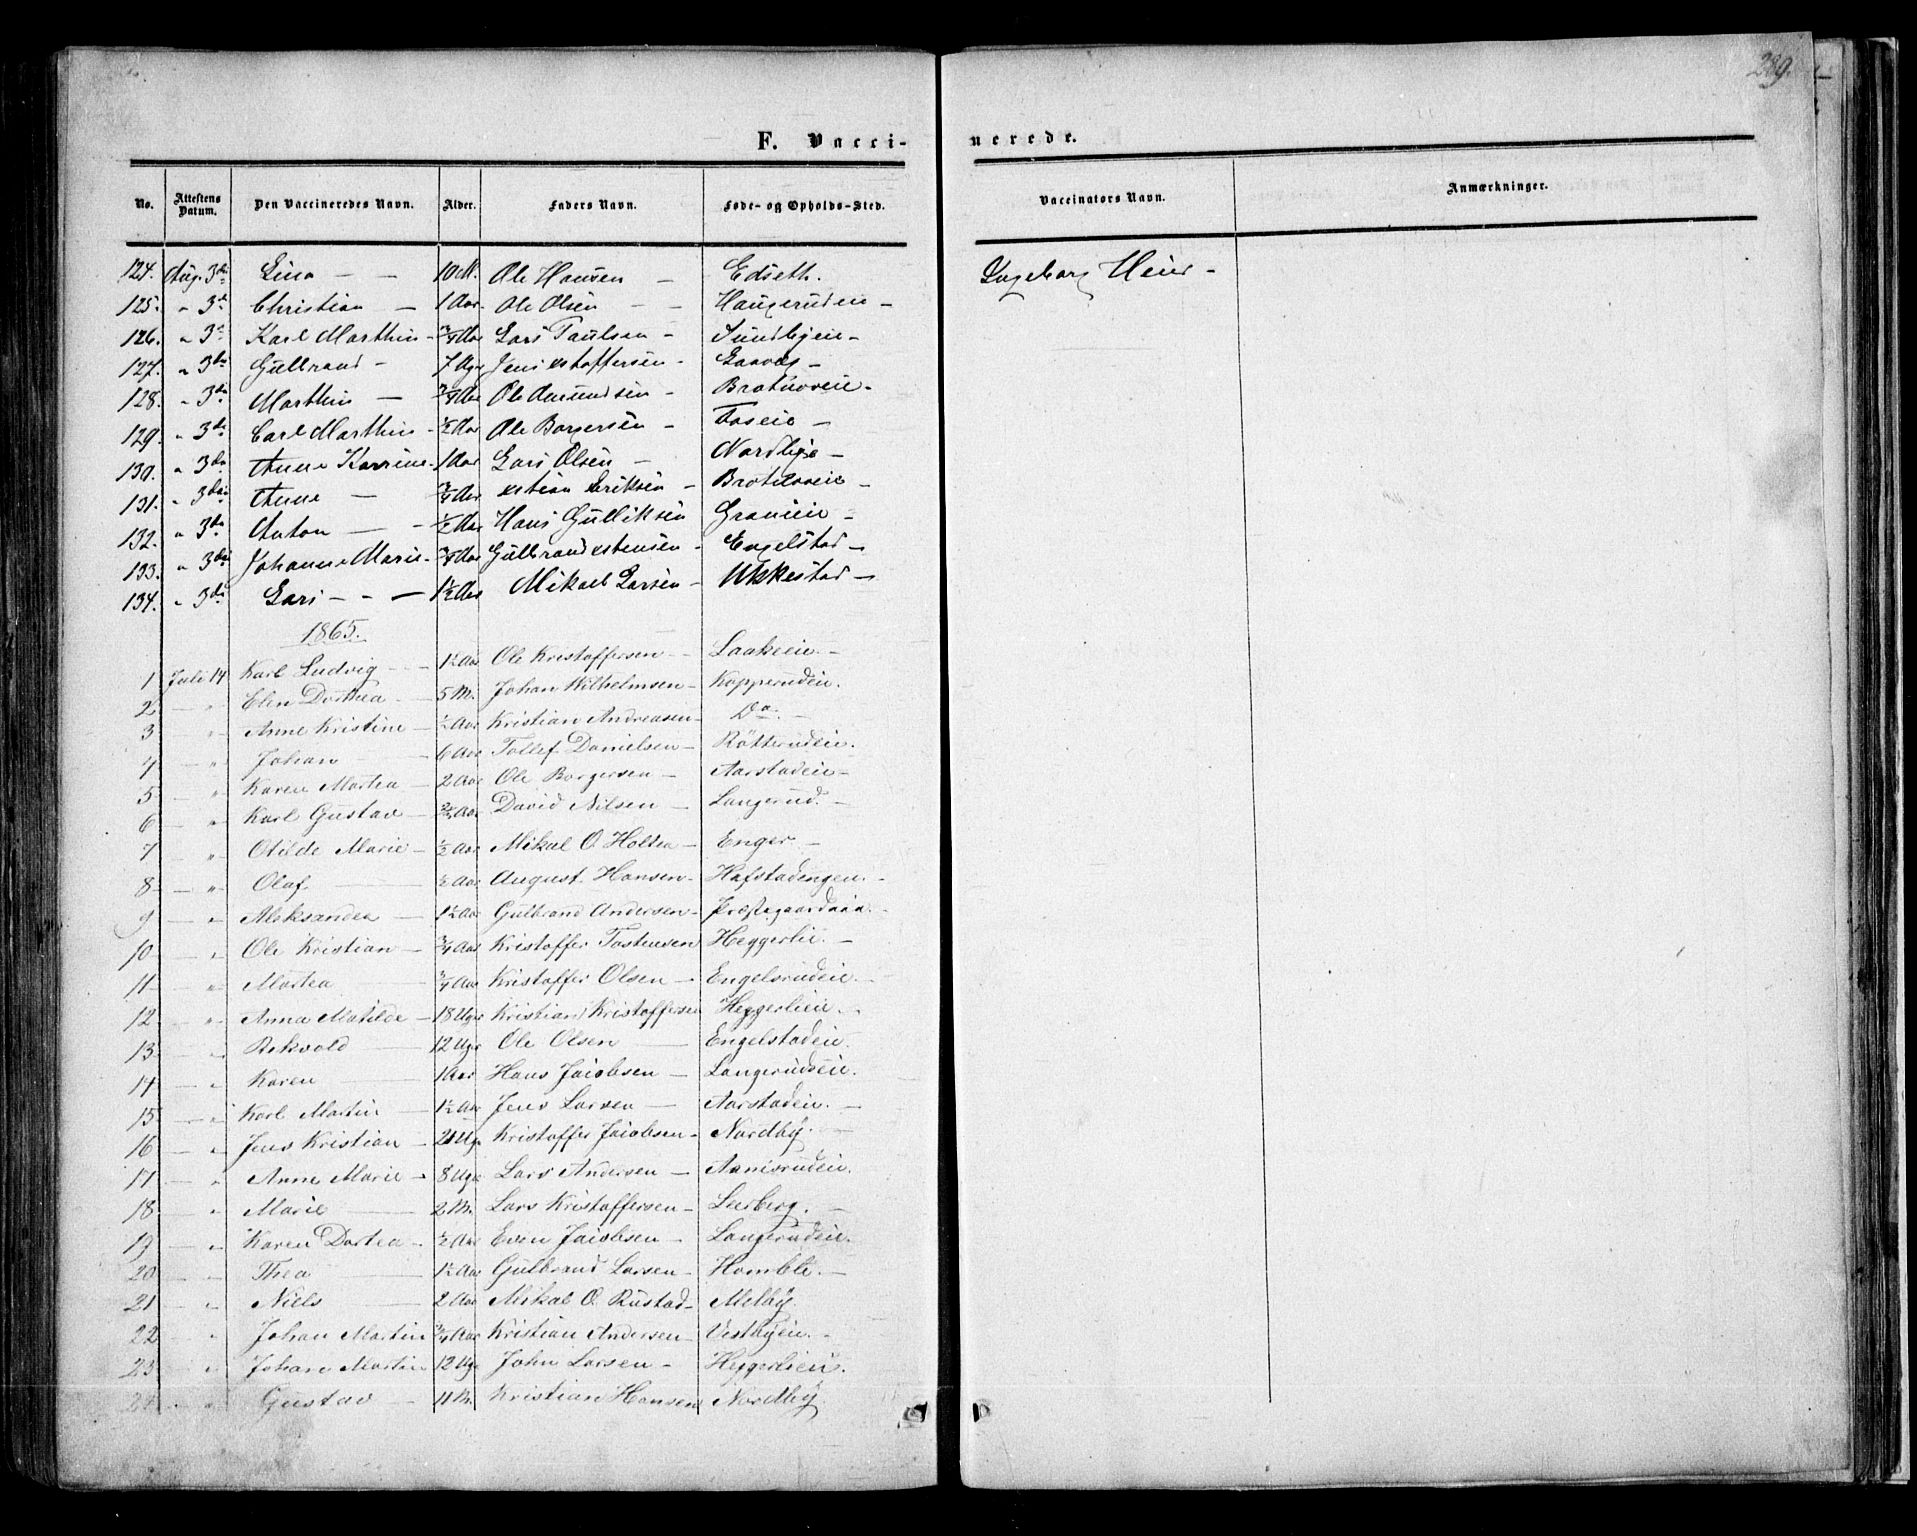 289.
F. Vacci-
nerede.
No. Attestens Datum. Den Vaccineredes Navn. Alder. Faders Navn. Føde- og Opholds-Sted. Vaccinators Navn. Anmærkninger.
124. Aug. 3die Lina — — 10 M. Ole Hansen — Edseth. Ingeborg Heier -
125. " 3d Christian — 1 Aar Ole Olsen — Haugerudeie —
126. " 3d Karl Marthin - 3/4 Aar Lars Paulsen — Sundbyeie —
127. " 3die Gulbrand — 7 Uger Jens Xstoffersen - Gaaväg —
128. " 3die Marthin — 3/4 Aar Ole Amundsen — Brotnoveie -
129. " 3die Carl Marthin - 1/2 Aar Ole Borgersen — Foseie —
130. " 3die Anne Karrine - 1 Aar Lars Olsen — Nordbye —
131. " 3die Anne — 3/4 Aar Xstian Eriksen — Brotnoveie —
132. " 3die Anton — - 1/2 Aar Hans Gulliksen Granieie —
133. " 3die Johanne Marie - 3/4 Aar Gulbrand Xstensen - Engelstad —
134. " 3die Lars — - — 1 1/2 Aar Mikael Larsen - Ukkestad —
1865.
1 Juli 14 Karl Ludvig — 1 1/2 Aar Ole Kristoffersen — Laakeeie —
2 — " Elen Dorthea — 5 M. Johan Wilhelmsen — Kopperudeie.
3 " Anne Kristine — 1/2 Aar Kristian Andreasen — Do. —
4 — " Johan — 6 Aar Tollef Danielsen — Rötterudeie.
5 — " Karen Martea — 2 Aar Ole Borgersen — Aarstadeie —
6 — " Karl Gustav — 3/4 Aar David Nilsen — Langerud. —
7 — " Otilde Marie — 1/2 Aar Mikal O. Holtea — Enger —
8 — " Olaf — 1/2 Aar August Hansen — Hafstadengen. -
9 — " Aleksandea — 1 1/2 Aar Gulbrand Andersen — Præstegaardseie. —
10 — " Ole Kristian — 3/4 Aar Kristoffer Tostensen Heggerlie. —
11 — " Martea — 3/4 Aar Kristoffer Olsen — Engelsrudeie. —
12 — " Anna Matilde — 18 Uger Kristian Kristoffersen Heggerlieie. -
13 — " Rikvold — 12 Uger Ole Olsen — Engelstadeie.
14 — " Karen — 1 Aar Hans Jacobsen — Langerudseie.
15 — " Karl Martin — 1 1/2 Aar Jens Larsen — Aarstadeie. —
16 — " Jens Kristian — 21 Uger Kristoffer Jacobsen - Nordby. —
17 — " Anne Marie - 8 Uger Lars Andersen — Aanisrudeie.
18 — " Marie — 2 M. Lars Kristoffersen — Leerberg. —
19 — " Karen Dortea - 1/2 Aar Even Jacobsen — Langerudeie.
20 — " Thea — 1 1/2 Aar Gulbrand Larsen - Homble. —
21 — " Niels — 2 Aar Mikal O. Rustad - Melby.
22 — " Johan Martin 3/4 Aar Kristian Andersen — Vestbyeie. -
23 — " Johan Martin 12 Uger John Larsen — Heggerlieie.
24 — " Gustav — 11 M. Kristian Hansen Nordby